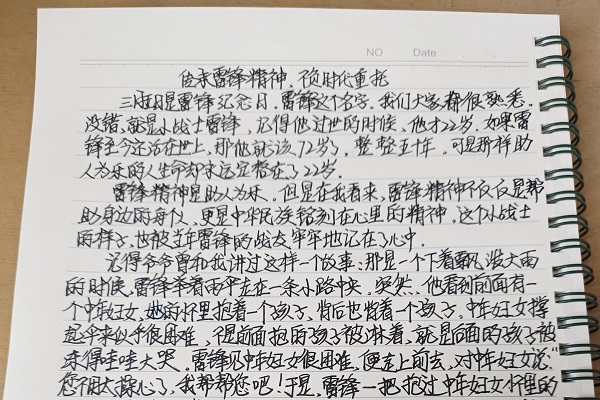 NO
Date
传承雷锋精神,不负时代重托
三月五日是雷锋纪念日,雷锋这个名字,我们大家都很熟悉。
没错,就是小战士雷锋,记得他过世的时候,他才22岁。如果雷
锋至今还活在世上,那他就该72岁了,整整五十年,可是那样助
人为乐的人生命却永远定格在了22岁。
雷锋精神是助人为乐。但是在我看来,雷锋精神不仅仅是帮
助身边的每个人,更是中华民族铭刻在心里的精神,这个小战士
的样子,也被当年雷锋的战友牢牢地记在了心中。
记得爷爷曾和我讲过这样一个故事:那是一个下着瓢泼大雨
的时候,雷锋举着雨伞走在一条小路中央,突然,他看到前面有一
个中年妇女,她的怀里抱着一个孩子,背后也背着一个孩子。中年妇女撑
起伞来似乎很困难,不是前面抱的孩子被淋着,就是后面的孩子被
淋得哇哇大哭。雷锋见中年妇女很困难,便走上前去,对中年妇女说:“
您不用太操心了,我帮帮您吧!于是,雷锋一把抱过中年妇女怀里的